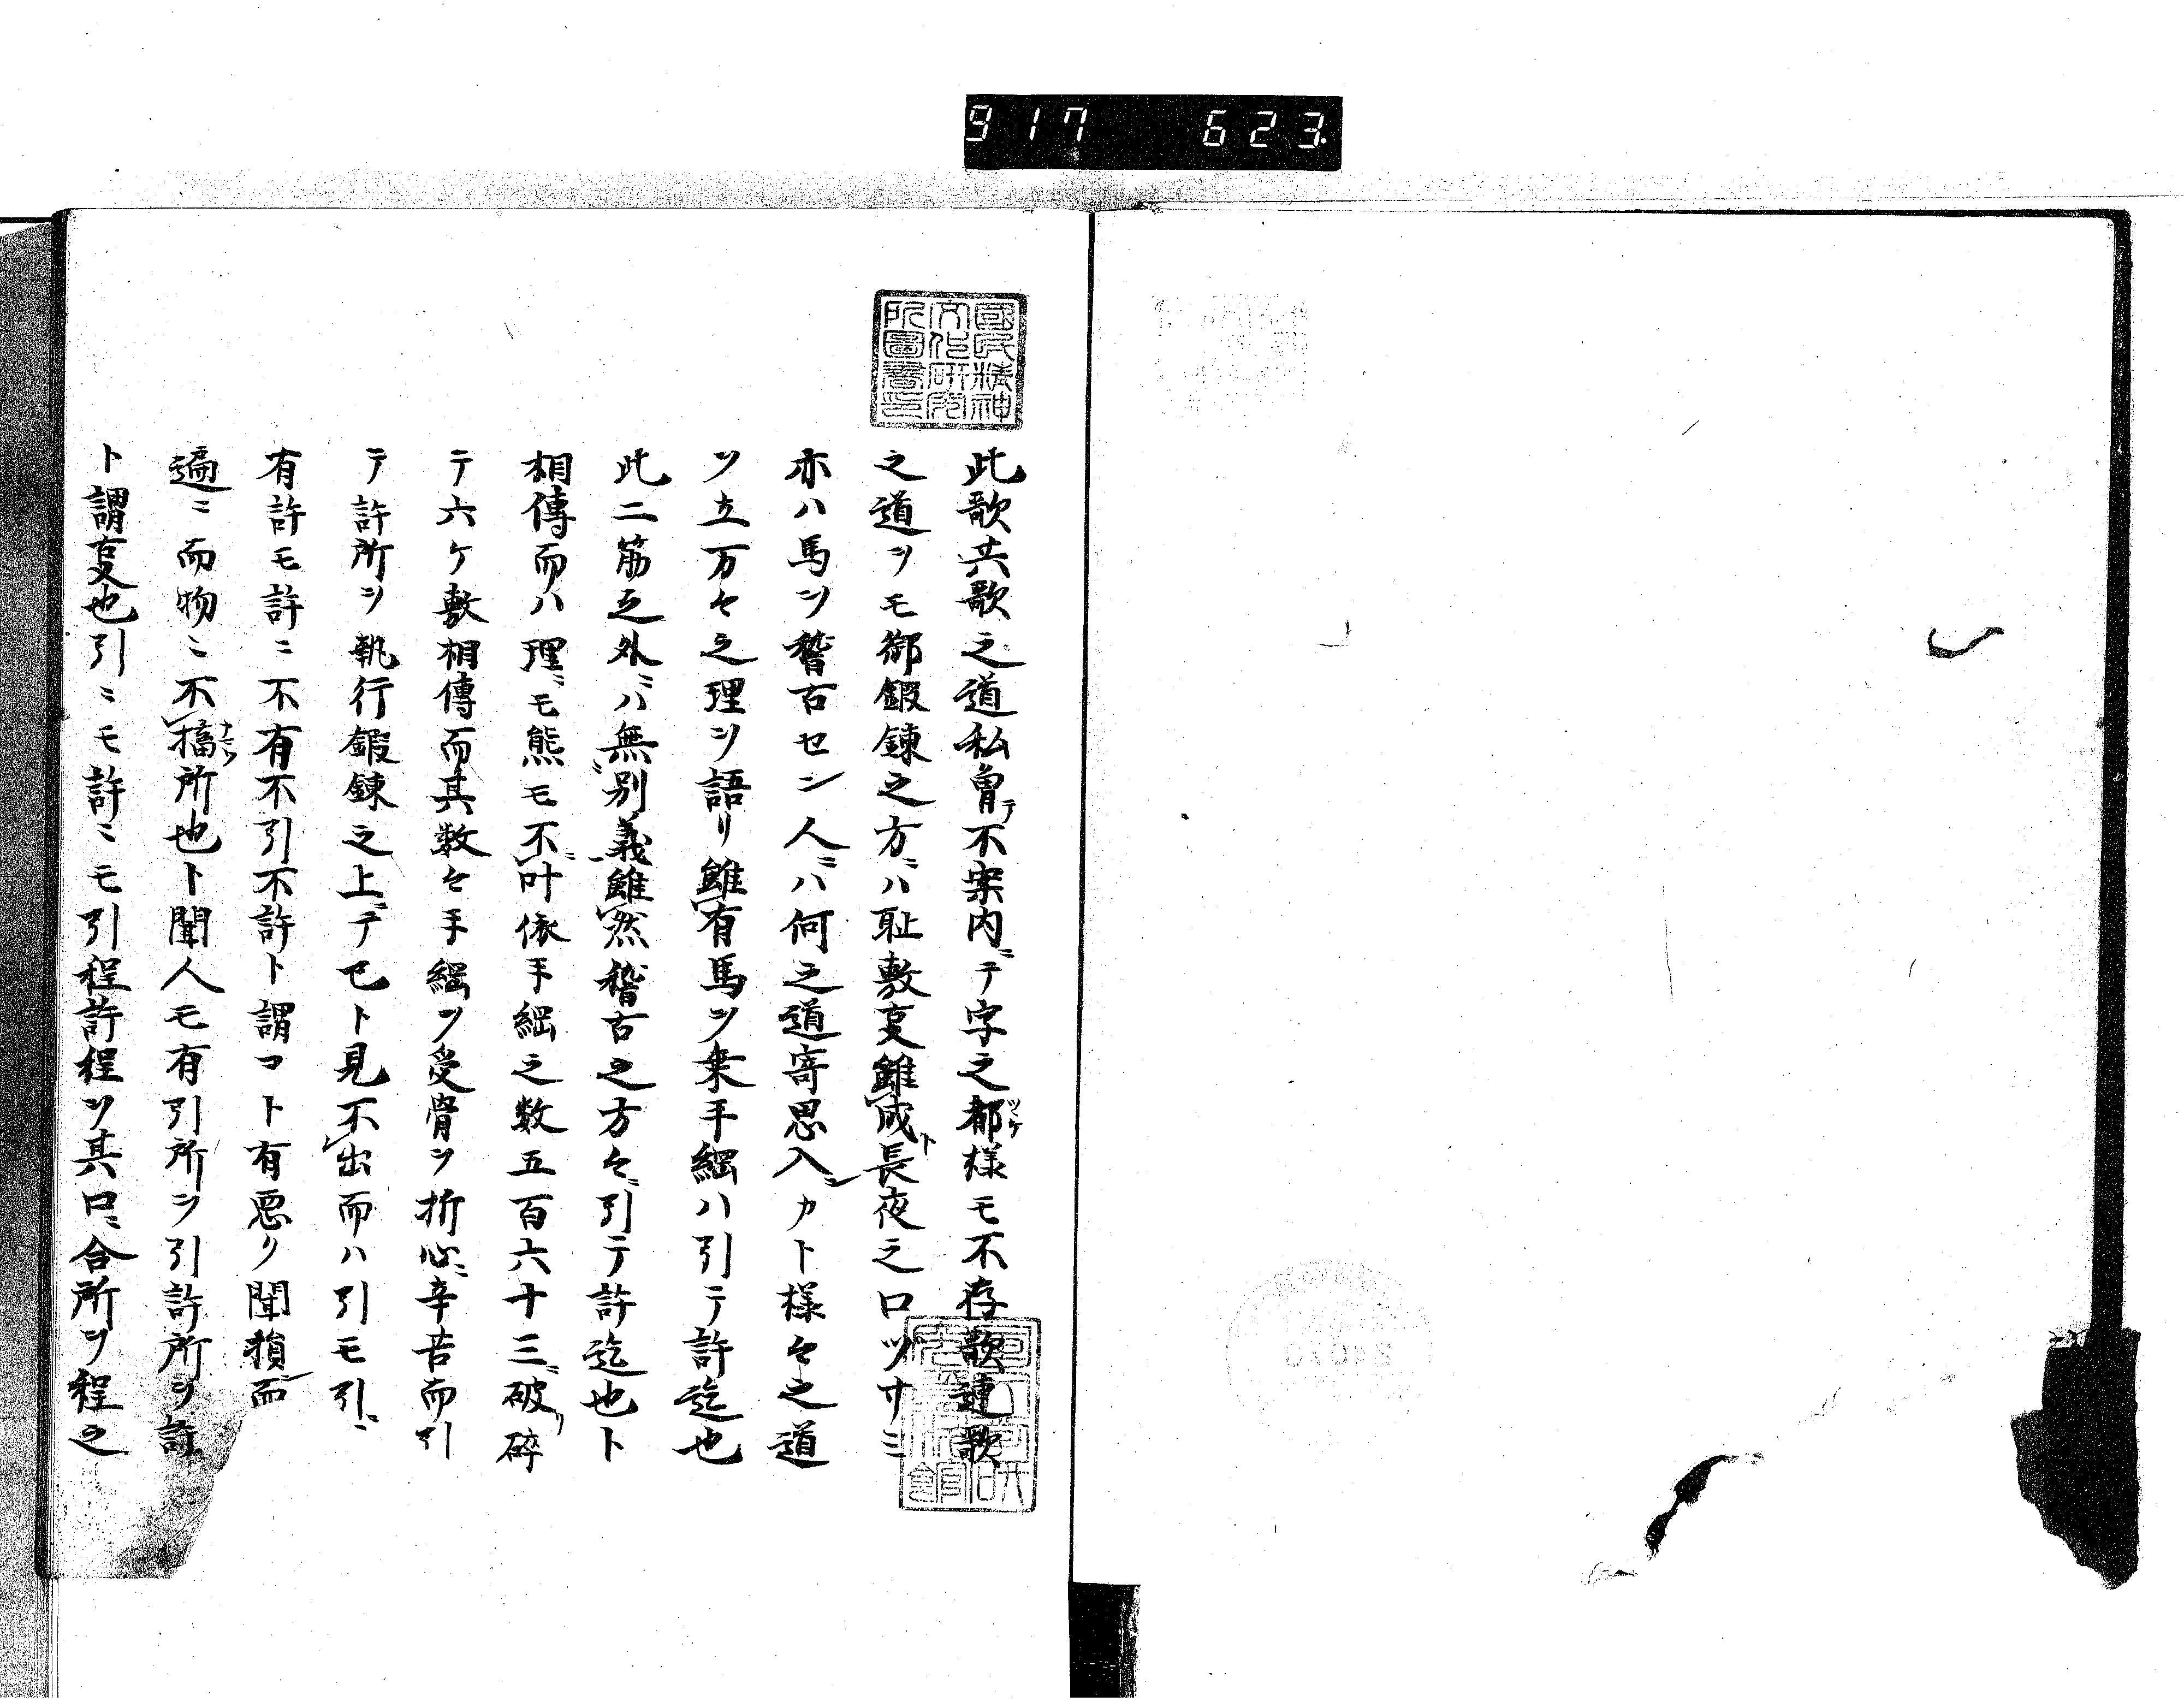 917 623
國民精神文化研究所圖書印
此歌共歌之道私曾テ不案内ニテ字之都ツケ様モ不存歌連歌
之道ヲモ御鍛錬之方ニハ耻敷叓雖成ト長夜之口ツサミ
亦ハ馬ヲ稽古セン人ニハ何之道寄思入カト様々之道
ヲ立万々之理ヲ語リ雖有馬ヲ乗手綱ハ引テ許迄也
此二筋之外ニハ無別義雖然稽古之方々ニ引テ許迄也ト
相傳而ハ理ニモ熊モ不叶依手綱之数五百六十三ニ破リ碎
テ六ケ敷相傳而其数々手綱ヲ受骨ヲ折心ニ辛苦而引
テ許所ヲ執行鍛錬之上ニテ已ト見不出而ハ引モ引ニ
有許モ許ニ不有不引不許ト謂コト有悪ク聞損而
遍ニ而物ニ不搞所也ト聞人モ有引所ヲ引許所ヲ許
ト謂叓也引ニモ許ニモ引程許程ヲ其口ニ合所ヲ程之